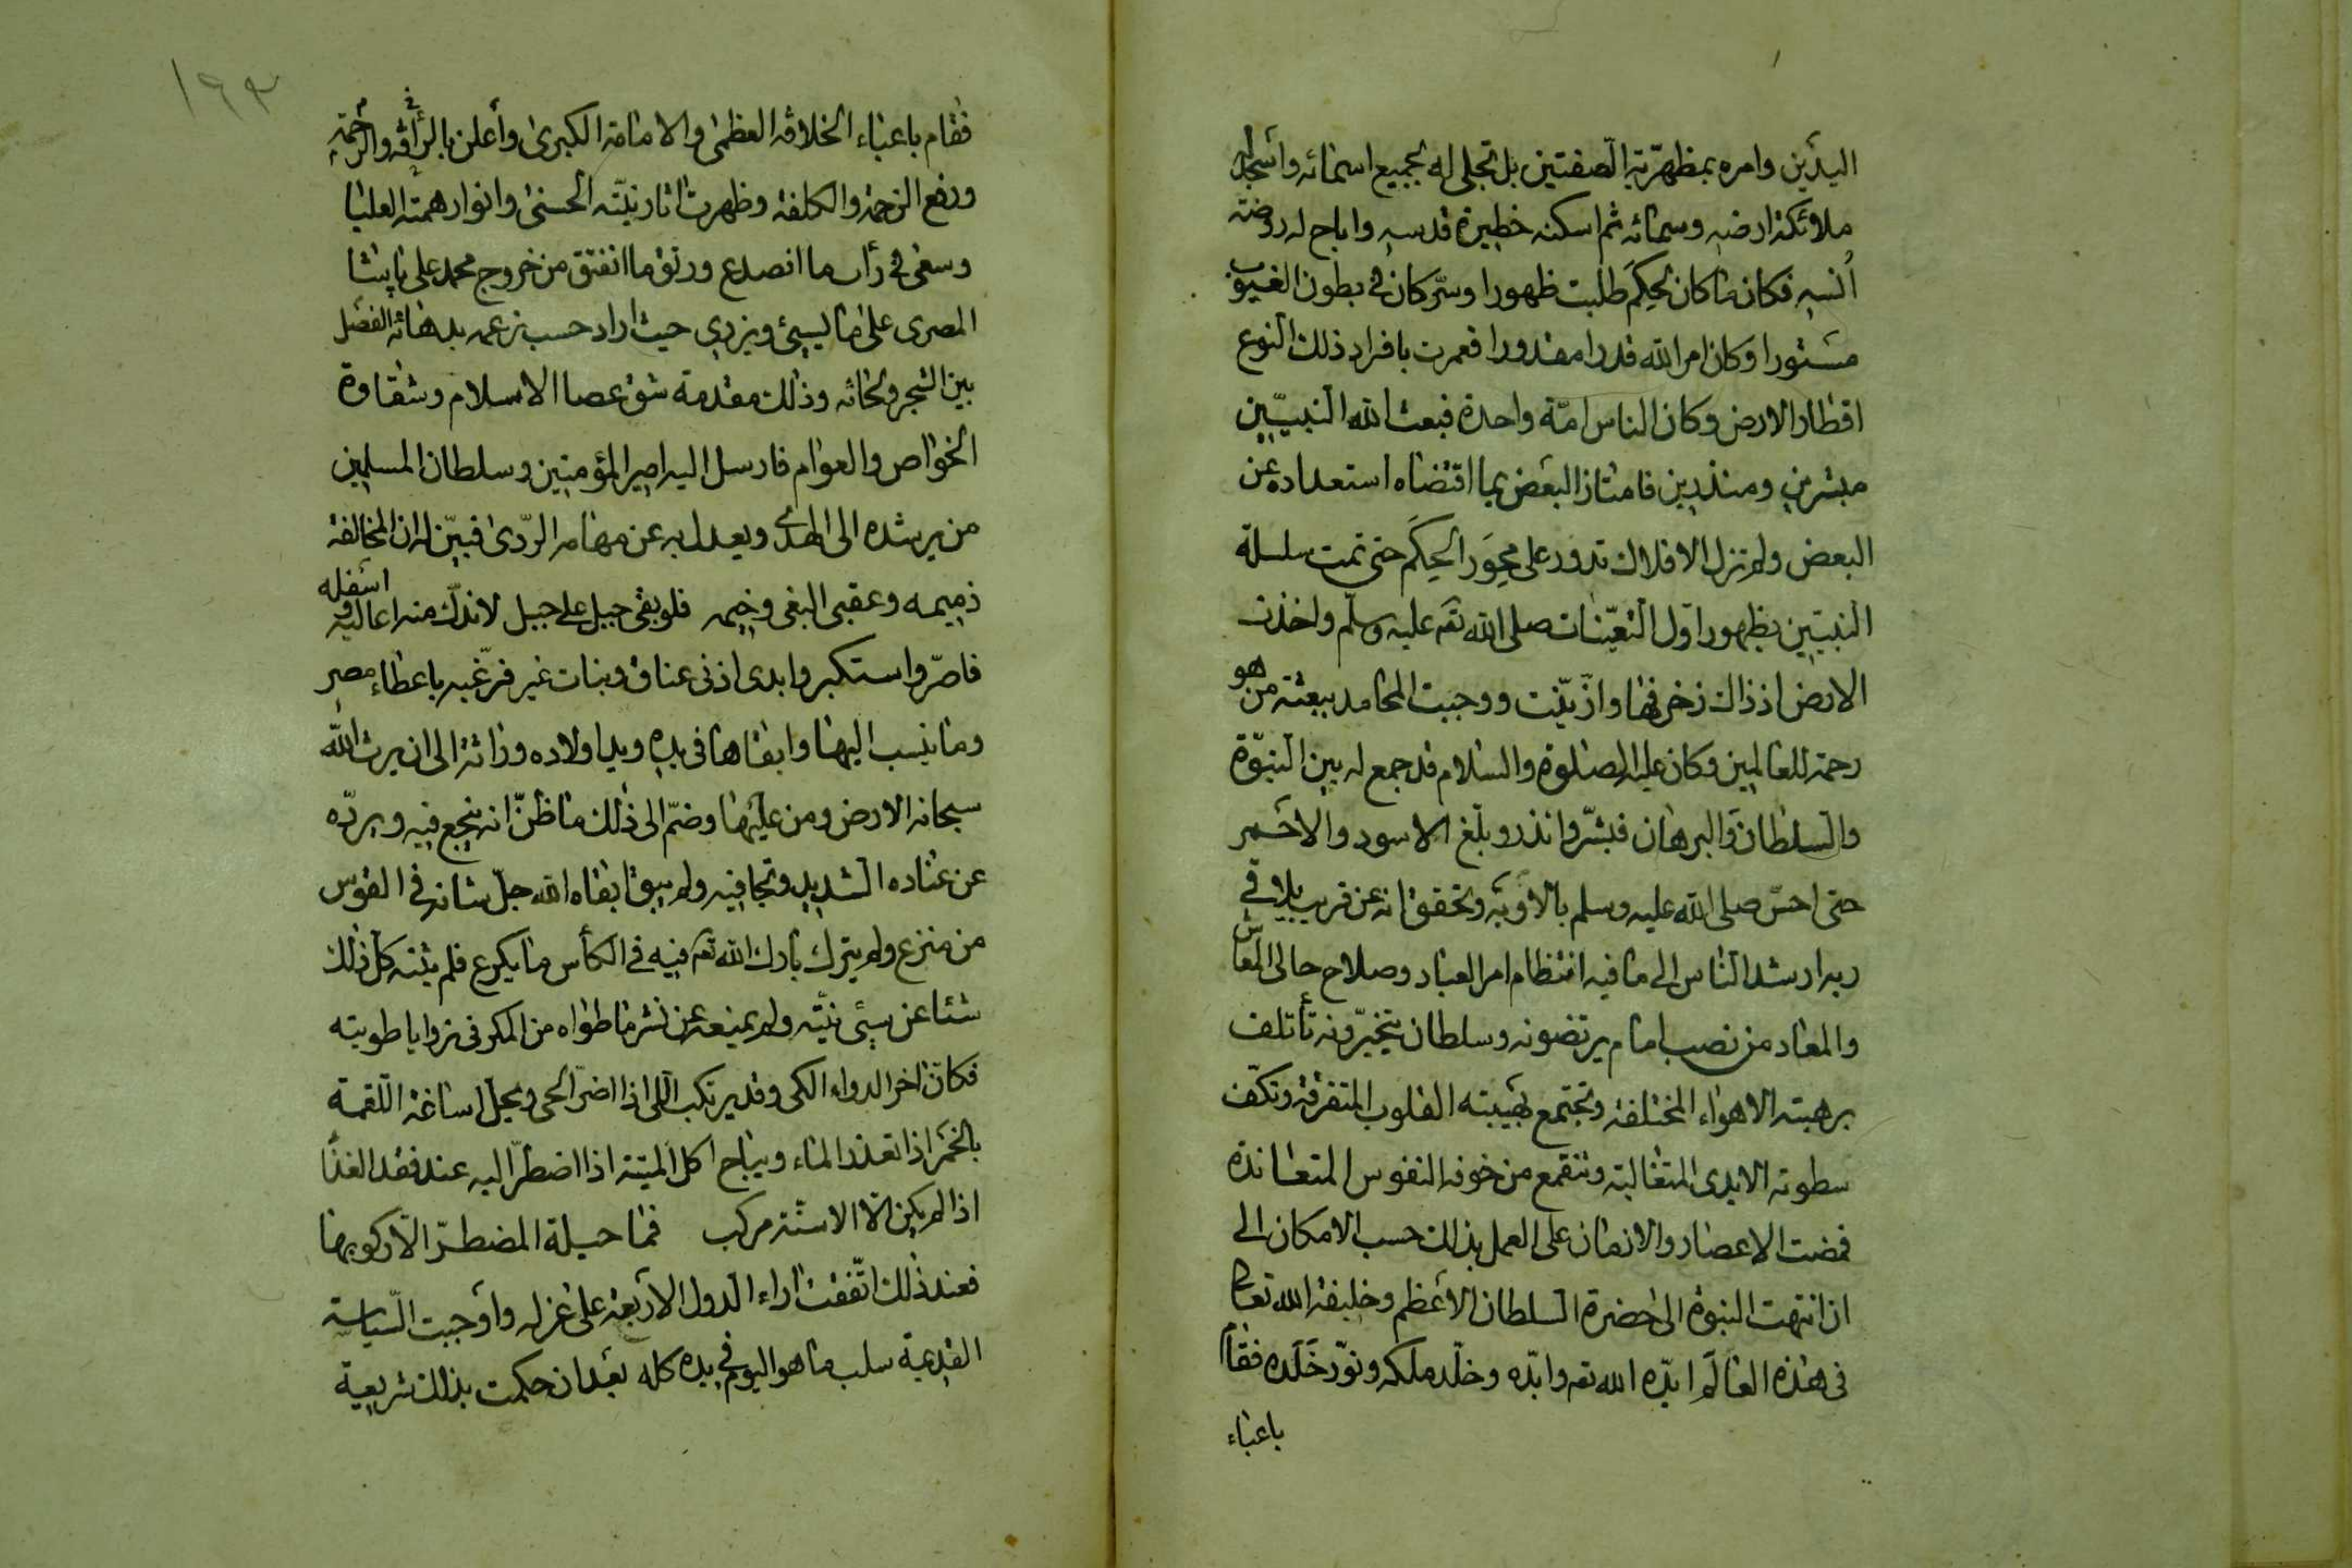 اليدين وامره بمظهرية الصفتين بل تجلى له بجميع اسمائه واسجد له
ملائكة ارضه وسمائه ثم اسكنه حظيرة قدسه واباح له روضة
أنسه فكان ما كان لحِكَم طلبت ظهورا وسرّ كان في بطون الغيوب
مستورا وكان امر الله قدرا مقدورا فعمرت بافراد ذلك النوع
اقطار الارض وكان الناس امّة واحدة فبعث الله النبيّين
مبشرين ومنذرين فامتاز البعض بما اقتضاه استعداده عن
البعض ولم تزل الافلاك تدور على محِوَر الحِكَم حتى تمت سلسلة
النبيّين بظهور اوّل التعيّنات صلى الله تعم عليه وسلّم واخذت
الارض اذ ذاك زخرفها وازّيّنت ووجبت المحامد ببعثة من هو
رحمة للعالمين وكان عليه الصلوة والسلام قد جمع له بين النبوّة
والسلطان والبرهان فبشّر وانذر وبلّغ الاسود والاحمر
حتى احسّ صلى الله عليه وسلم بالاوبة وتحقق انه عن قريب يلاقي
ربه ارشد الناس الى ما فيه انتظام امر العباد وصلاح حالى المعاش
والمعاد من نصب امام يرتضونه وسلطان يتخيّرونه تأتلف
برهبته الاهواء المختلفة وتجتمع بهيبته القلوب المتفرقة وتكفّ
سطوته الايدى المتغالبة وتنقمع من خوفه النفوس المتعاندة
فمضت الاعصار والازمان على العمل بذلك حسب الامكان الى
ان انتهت النبوة الى حضرة السلطان الاعظم وخليفة الله تعالى
فى هذه العالم ايّده الله تعم وابّده وخلّد ملكه ونوّر خَلَده فقام
باعباء
١٩٣
فقام باعباء الخلافة العظمى والامامة الكبرى وأعلن بالرأفة والرحمة
ورفع الزحمة والكلفة وظهرت اثار نيّته الحسنى وانوار همته العليا
وسعى فى رأب ما انصدع ورتق ما انفتق من خروج محمد على پاشا
المصرى على ما يسيئ ويزدى حيث اراد حسب زعمه بدهائه الفصل
بين الشجر ولحائه وذلك مقدمة شق عصا الاسلام وشقاوة
الخواص والعوام فارسل اليه امير المؤمنين وسلطان المسلمين
من يرشده الى الهدى ويعدل به عن مهامه الرّدى فبيّن له ان المخالفة
ذميمه وعقبى البغى وخيمه فلو بغى جبل على جبل لاندكّ منه اعاليه واسفله
فاصرّ واستكبر وابدى اذنى عناق وبنات غير فرّغبه باعطاء مصر
وما ينسب اليها وابقاها فى يده ويد اولاده وراثة الى ان يرث الله
سبحانه الارض ومن عليها وضمّ الى ذلك ما ظنّ انه ينجع فيه ويردّه
عن عناده الشديد وتجافيه ولم يبق ابقاه الله جلّ شانه فى القوس
من منزع ولم يترك بارك الله تعم فيه فى الكأس ما يكرع فلم يثنه كل ذلك
شئا عن سيئ نيّته ولم يمنعه عن نشر ما طواه من المكر فى زوايا طويته
فكان اخر الدواء الكى وقد يرتكب اللى اذا اضرّ الحى ويحل اساغة اللقمة
بالخمر اذا تعذر الماء ويباح اكل الميتة اذا اضطرّ اليه عند فقد الغذا
اذا لم يكن الا الاسنة مركب فما حيلة المضطرّ الّا ركوبها
فعند ذلك اتّفقت اراء الدول الاربعة على عزله واوجبت السّياسة
القديمة سلب ما هو اليوم فى يده كله بعد ان حكمت بذلك شريعية